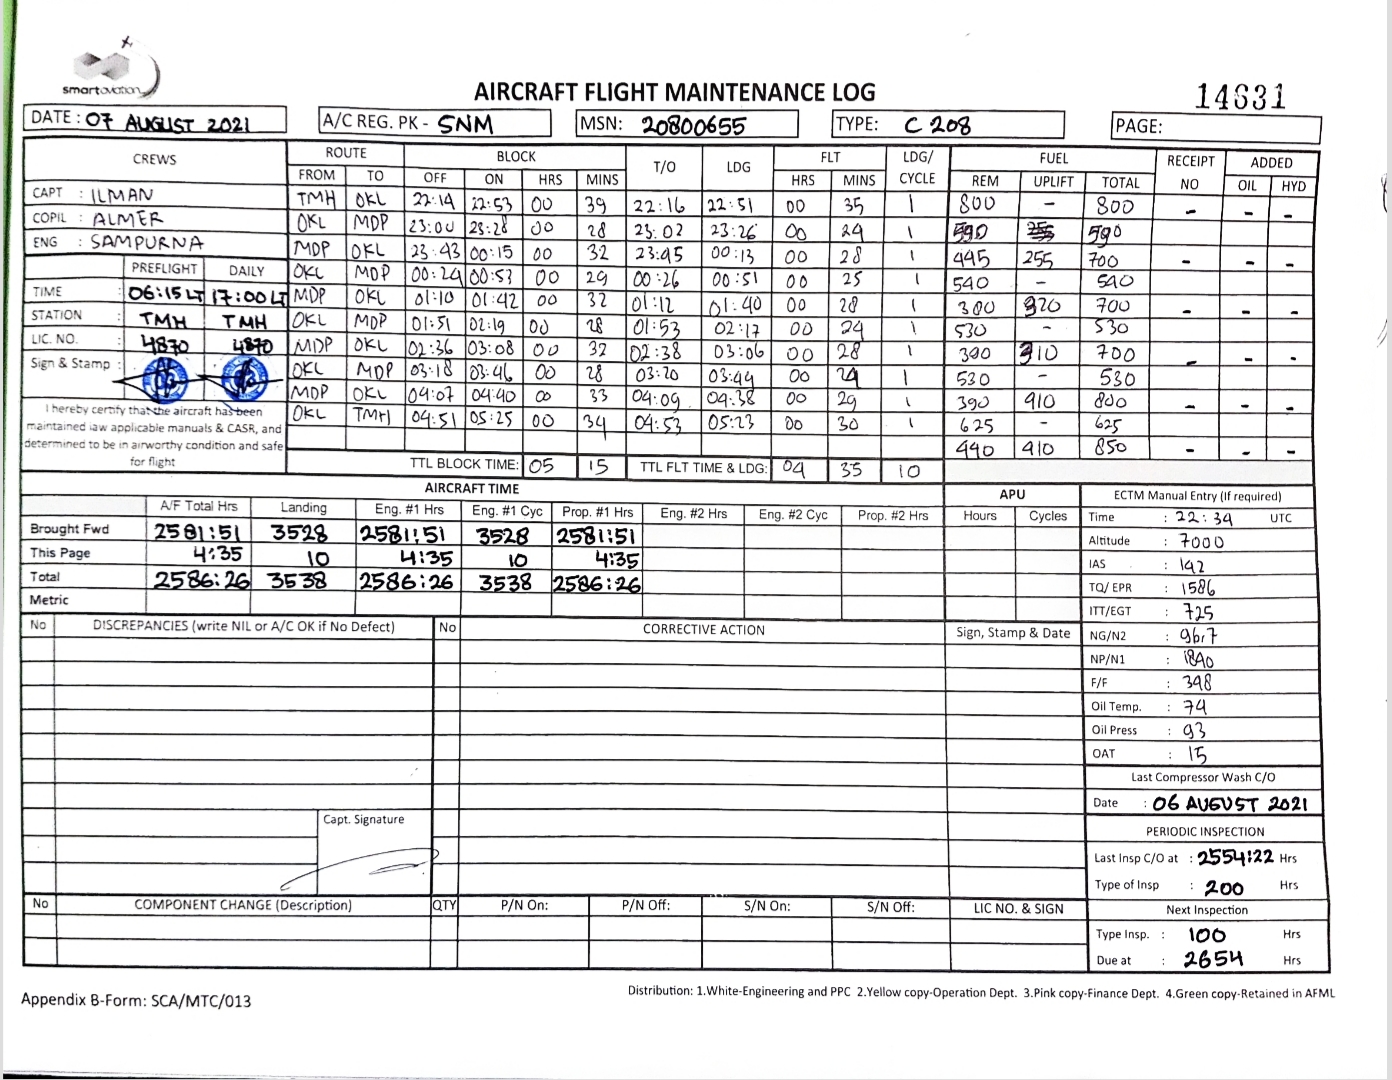 smartovation
AIRCRAFT FLIGHT MAINTENANCE LOG
14631
DATE : 07 AUGUST 2021 A/C REG. PK - SNM MSN: 20800655 TYPE: C 208 PAGE:
CREWS ROUTE BLOCK T/O LDG FLT LDG/ CYCLE FUEL RECEIPT NO ADDED
FROM TO OFF ON HRS MINS HRS MINS REM UPLIFT TOTAL OIL HYD
CAPT : ILMAN
COPIL : ALMER
ENG : SAMPURNA
PREFLIGHT DAILY
TIME : 06:15 LT 17:00 LT
STATION : TMH TMH
LIC. NO. : 4870 4870
Sign & Stamp :
I hereby certify that the aircraft has been
maintained iaw applicable manuals & CASR, and
determined to be in airworthy condition and safe
for flight
TMH OKL 22:14 22:53 00 39 22:16 22:51 00 35 1 800 - 800 - - -
OKL MDP 23:00 23:28 00 28 23:02 23:26 00 24 1 590 590
MDP OKL 23:43 00:15 00 32 23:45 00:13 00 28 1 445 255 700 - - -
OKL MDP 00:24 00:53 00 29 00:26 00:51 00 25 1 540 - 540
MDP OKL 01:10 01:42 00 32 01:12 01:40 00 28 1 380 320 700 - - -
OKL MDP 01:51 02:19 00 28 01:53 02:17 00 24 1 530 - 530
MDP OKL 02:36 03:08 00 32 02:38 03:06 00 28 1 390 310 700 - - -
OKL MDP 03:18 03:46 00 28 03:20 03:44 00 24 1 530 - 530
MDP OKL 04:07 04:40 00 33 04:09 04:38 00 29 1 390 410 800 - - -
OKL TMH 04:51 05:25 00 34 04:53 05:23 00 30 1 625 - 625
440 410 850 - - -
TTL BLOCK TIME: 05 15 TTL FLT TIME & LDG: 04 35 10
AIRCRAFT TIME APU
A/F Total Hrs Landing Eng. #1 Hrs Eng. #1 Cyc Prop. #1 Hrs Eng. #2 Hrs Eng. #2 Cyc Prop. #2 Hrs Hours Cycles
Brought Fwd 2581:51 3528 2581:51 3528 2581:51
This Page 4:35 10 4:35 10 4:35
Total 2586:26 3538 2586:26 3538 2586:26
Metric
ECTM Manual Entry (If required)
Time : 22:34 UTC
Altitude : 7000
IAS : 142
TQ/ EPR : 1586
ITT/EGT : 725
NG/N2 : 96,7
NP/N1 : 1840
F/F : 348
Oil Temp. : 74
Oil Press : 93
OAT : 15
Last Compressor Wash C/O
Date : 06 AUGUST 2021
PERIODIC INSPECTION
Last Insp C/O at : 2554:22 Hrs
Type of Insp : 200 Hrs
Next Inspection
Type Insp. : 100 Hrs
Due at : 2654 Hrs
No DISCREPANCIES (write NIL or A/C OK if No Defect) No CORRECTIVE ACTION Sign, Stamp & Date
Capt. Signature
No COMPONENT CHANGE (Description) QTY P/N On: P/N Off: S/N On: S/N Off: LIC NO. & SIGN
Appendix B-Form: SCA/MTC/013
Distribution: 1.White-Engineering and PPC 2.Yellow copy-Operation Dept. 3.Pink copy-Finance Dept. 4.Green copy-Retained in AFML